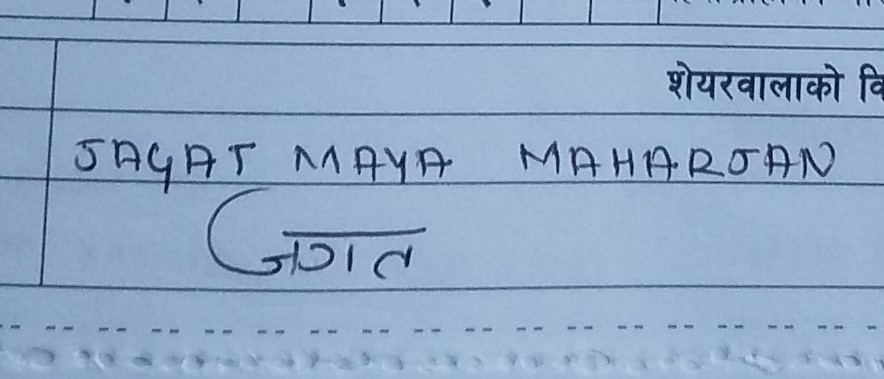 शेयरवालाको वि
JAGAT MAYA MAHARJAN
जगत